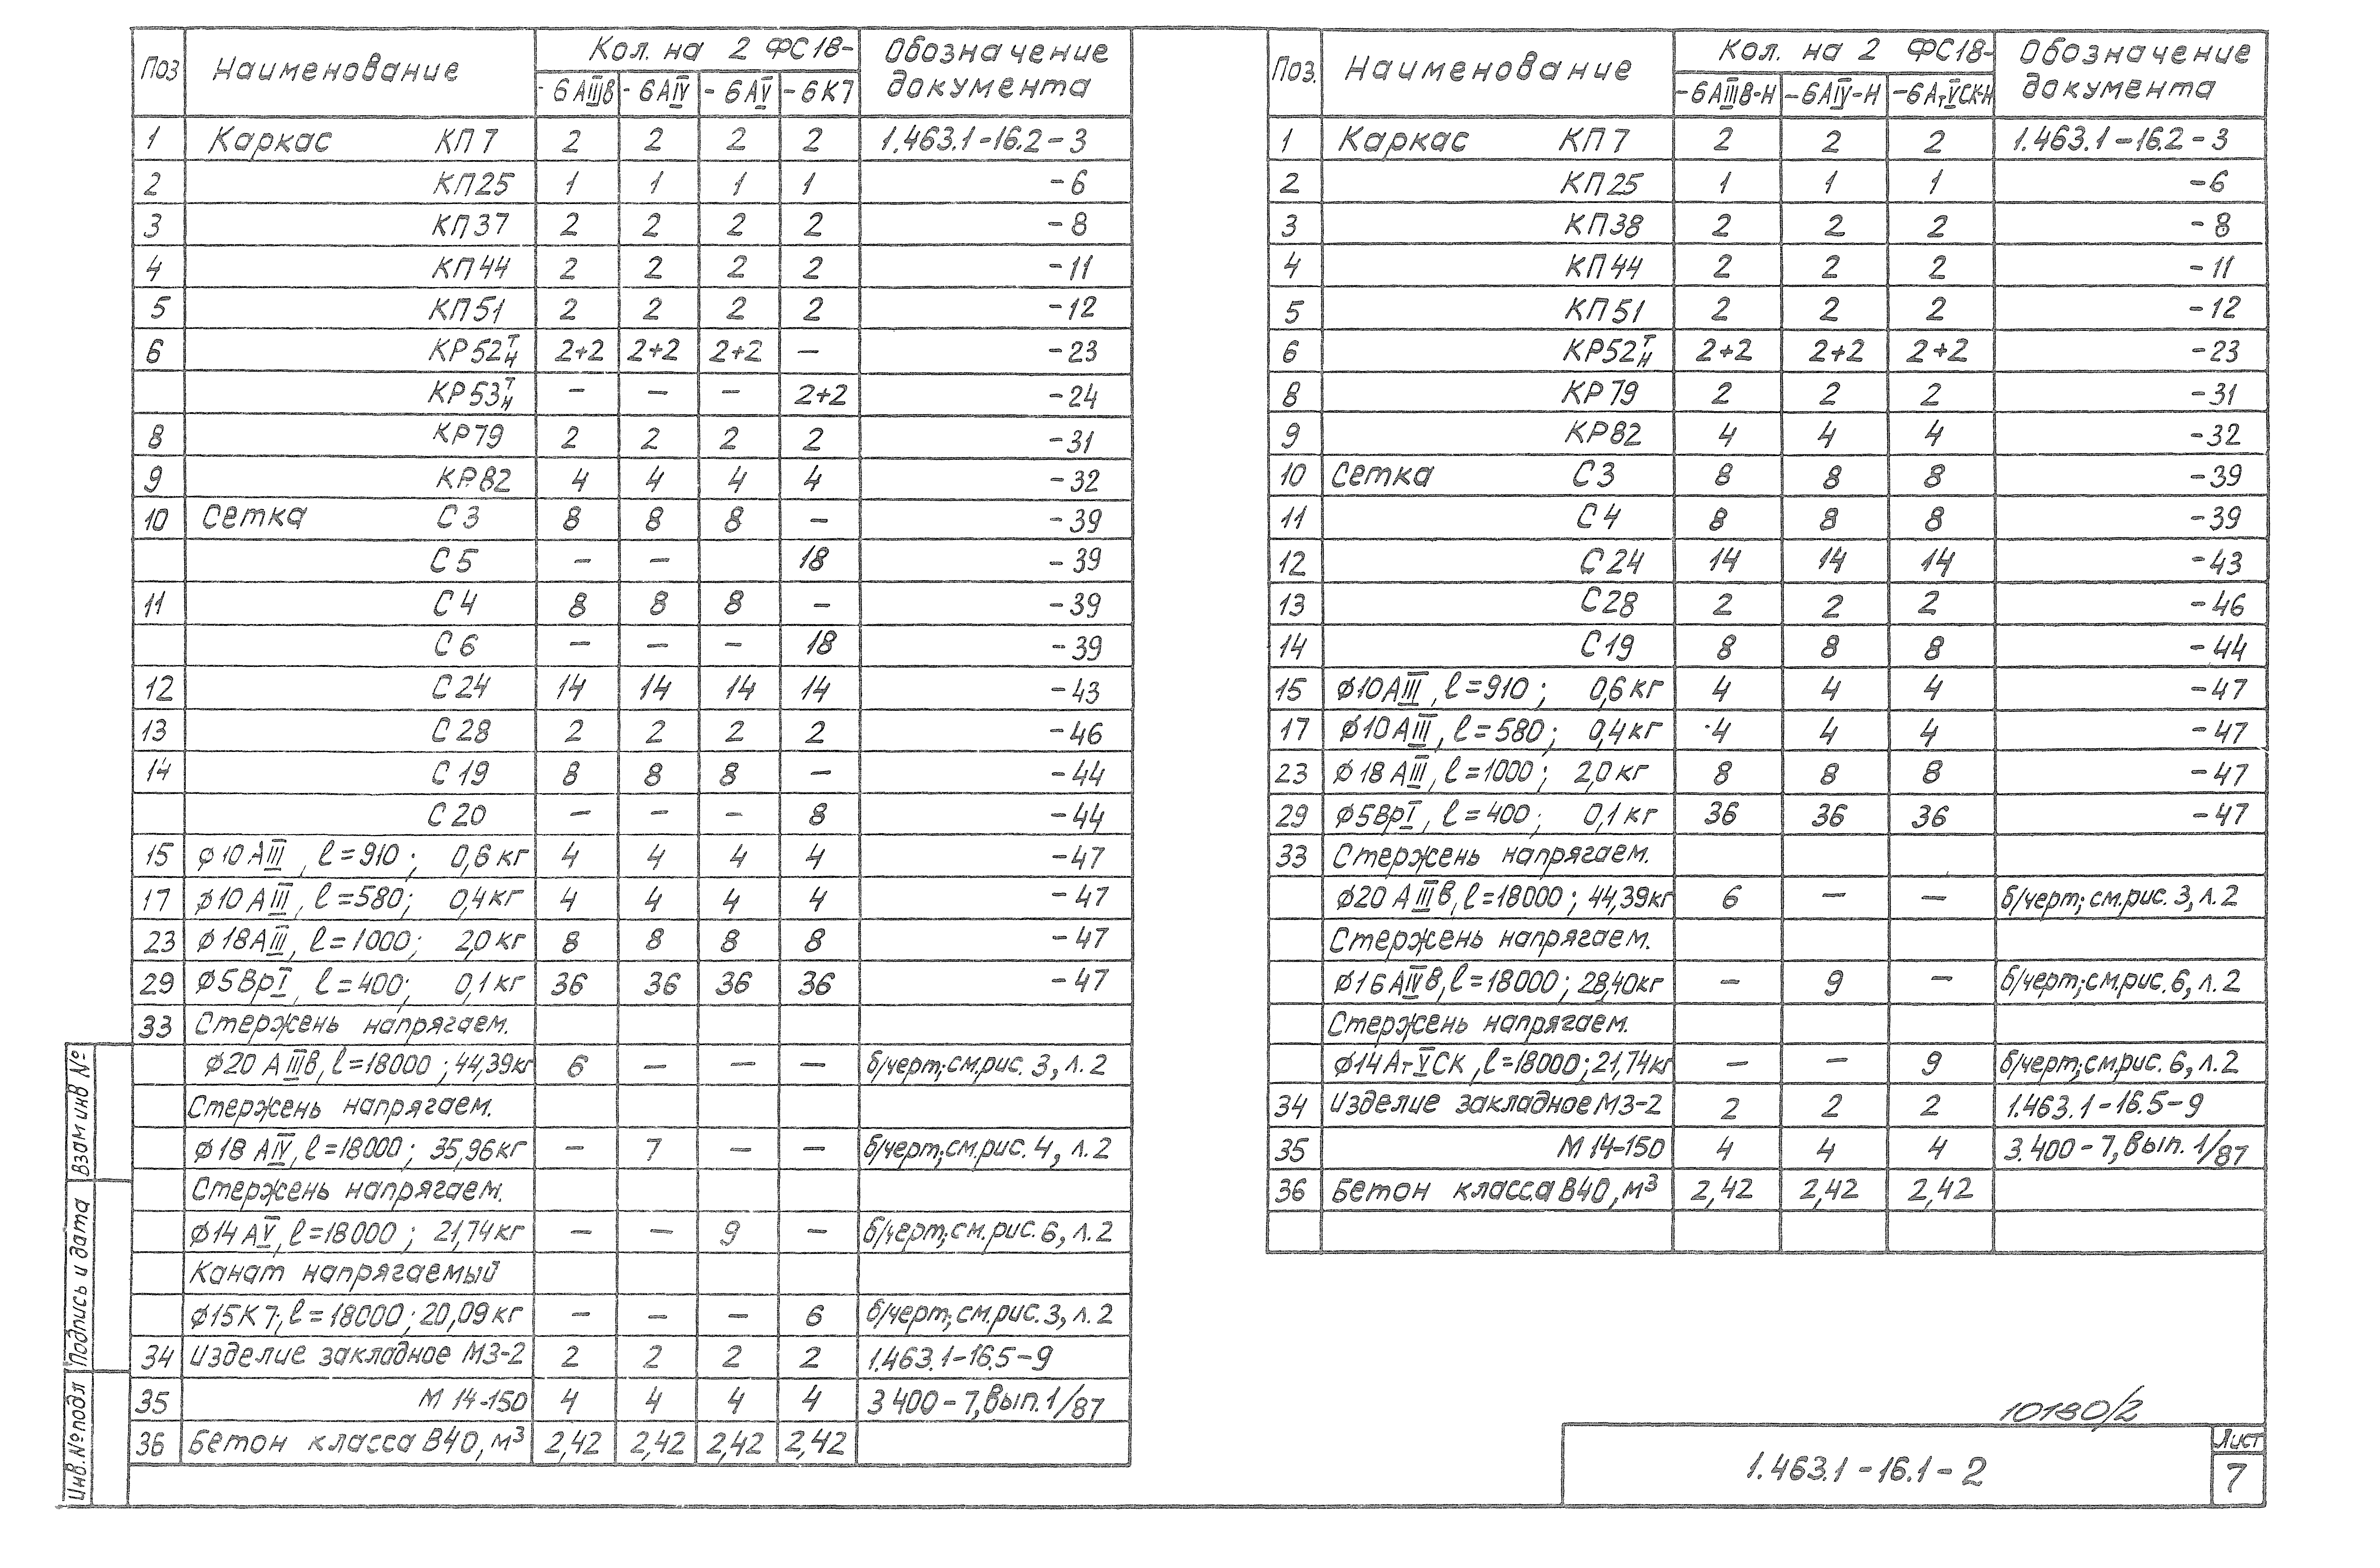 Поз Наименование Кол. на 2 ФС18- Обозначение документа
-6АIIIв -6АIV -6АV -6К7
1 Каркас КП7 2 2 2 2 1.463.1-16.2-3
2 КП25 1 1 1 1 -6
3 КП37 2 2 2 2 -8
4 КП44 2 2 2 2 -11
5 КП51 2 2 2 2 -12
6 КР52Т/Н 2+2 2+2 2+2 — -23
КР53Т/Н — — — 2+2 -24
8 КР79 2 2 2 2 -31
9 КР82 4 4 4 4 -32
10 Сетка С3 8 8 8 — -39
С5 — — 18 -39
11 С4 8 8 8 — -39
С6 — — — 18 -39
12 С24 14 14 14 14 -43
13 С28 2 2 2 2 -46
14 С19 8 8 8 — -44
С20 — — — 8 -44
15 ϕ10АIII, ℓ=910; 0,6кг 4 4 4 4 -47
17 ϕ10АIII, ℓ=580; 0,4кг 4 4 4 4 -47
23 ϕ18АIII, ℓ=1000; 2,0кг 8 8 8 8 -47
29 ϕ5ВрI, ℓ=400; 0,1кг 36 36 36 36 -47
33 Стержень напрягаем.
ϕ20АIIIв, ℓ=18000; 44,39кг 6 — — — б/черт; см.рис.3, л.2
Стержень напрягаем.
ϕ18АIV, ℓ=18000; 35,96кг — 7 — — б/черт; см.рис.4, л.2
Стержень напрягаем.
ϕ14АV, ℓ=18000; 21,74кг — — 9 — б/черт; см.рис.6, л.2
Канат напрягаемый
ϕ15К7, ℓ=18000; 20,09кг — — — 6 б/черт; см.рис.3, л.2
34 Изделие закладное МЗ-2 2 2 2 2 1.463.1-16.5-9
35 М14-150 4 4 4 4 3 400-7, Вып.1/87
36 Бетон класса В40, м³ 2,42 2,42 2,42 2,42
Поз. Наименование Кол. на 2 ФС18- Обозначение документа
-6АIIIв-Н -6АIV-Н -6АтVСК-Н
1 Каркас КП7 2 2 2 1.463.1-16.2-3
2 КП25 1 1 1 -6
3 КП38 2 2 2 -8
4 КП44 2 2 2 -11
5 КП51 2 2 2 -12
6 КР52Т/Н 2+2 2+2 2+2 -23
8 КР79 2 2 2 -31
9 КР82 4 4 4 -32
10 Сетка С3 8 8 8 -39
11 С4 8 8 8 -39
12 С24 14 14 14 -43
13 С28 2 2 2 -46
14 С19 8 8 8 -44
15 ϕ10АIII, ℓ=910; 0,6кг 4 4 4 -47
17 ϕ10АIII, ℓ=580; 0,4кг 4 4 4 -47
23 ϕ18АIII, ℓ=1000; 2,0кг 8 8 8 -47
29 ϕ5ВрI, ℓ=400; 0,1кг 36 36 36 -47
33 Стержень напрягаем.
ϕ20АIIIв, ℓ=18000; 44,39кг 6 — — б/черт; см.рис.3, л.2
Стержень напрягаем.
ϕ16АIVв, ℓ=18000; 28,40кг — 9 — б/черт; см.рис.6, л.2
Стержень напрягаем.
ϕ14АтVСК, ℓ=18000; 21,74кг — — 9 б/черт; см.рис.6, л.2
34 Изделие закладное МЗ-2 2 2 2 1.463.1-16.5-9
35 М14-150 4 4 4 3.400-7, Вып.1/87
36 Бетон класса В40, м³ 2,42 2,42 2,42
Взам инв №
Подпись и дата
Инв.№подл
10180/2
1.463.1-16.1-2
Лист
7